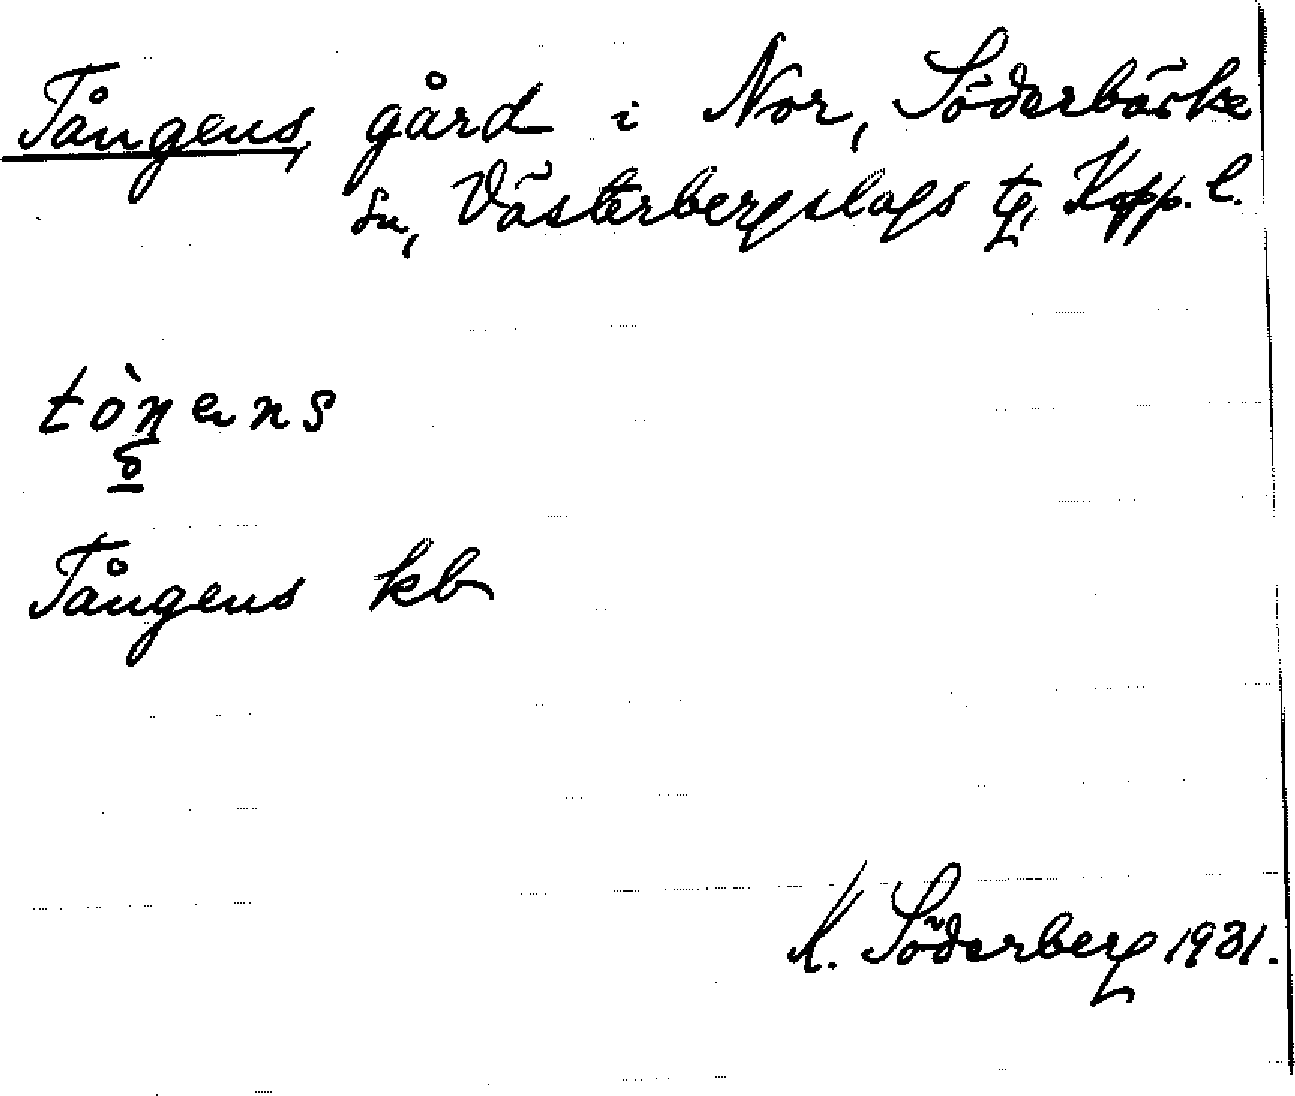 Tångens, gård i Nor, Söderbärke
sn, Västerbergslags tg, Kopp. l.
tòŋens
Tångens kb
K. Söderberg 1931.